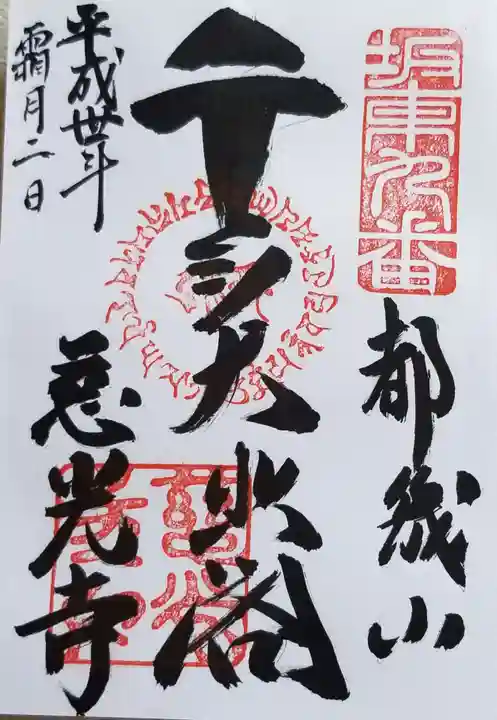 坂東九番
都幾山
千手大悲閣
慈光寺
平成卅年
霜月二日